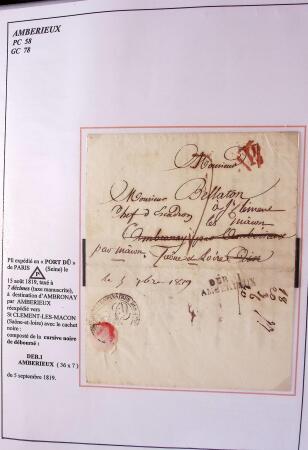 AMBERIEUX
PC 58
GC 78
Pli expédié en « PORT DÛ »
de PARIS (Seine) le
P
15 août 1819, taxé à
7 décimes (taxe manuscrite),
à destination d'AMBRONAY
par AMBERIEUX
réexpédié vers
St CLEMENT-LES-MACON
(Saône-et-loire) avec le cachet
noire :
composté de la cursive noire
de déboursé :
DEB.I
AMBERIEUX ( 36 x 7 )
du 5 septembre 1819.
Monsieur
Monsieur Bellaton
Chef d'Escadron
à St Clement
les Macon
Ambronay par Amberieux
par macon. Saône et Loire Ain
le 5 7bre 1819
DEB. I
AMBERIEUX